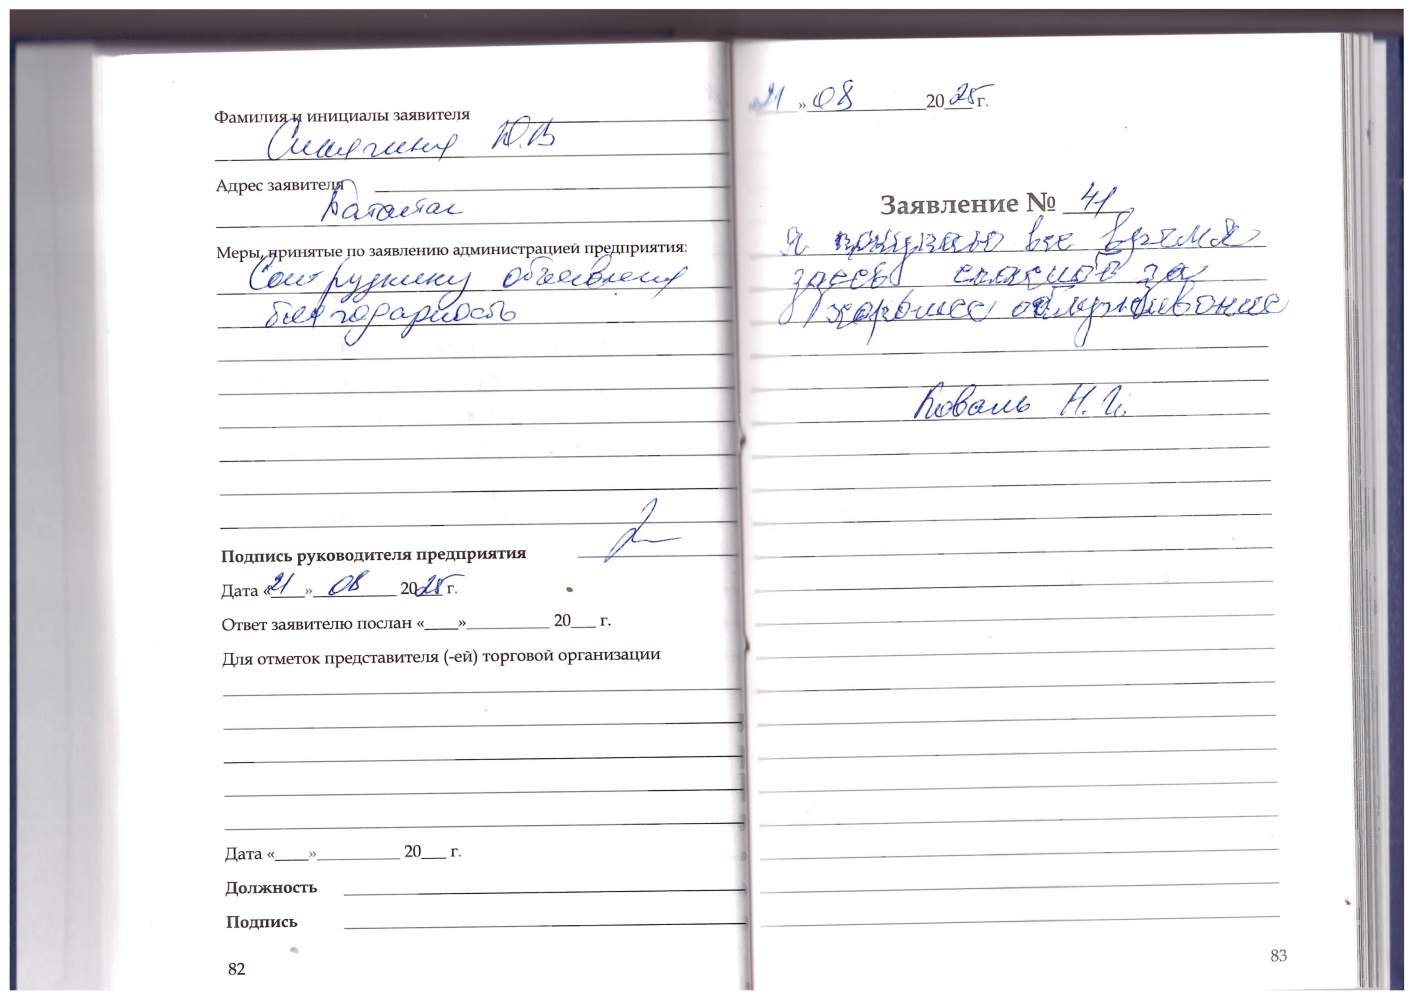 Фамилия и инициалы заявителя
Ю.В
Адрес заявителя
Батайск
Меры, принятые по заявлению администрацией предприятия:
Сотруднику объявлена
благодарность
Подпись руководителя предприятия
Дата «21» 08 2025 г.
Ответ заявителю послан «____»__________ 20___ г.
Для отметок представителя (-ей) торговой организации
Дата «____»__________ 20___ г.
Должность
Подпись
82
21 » 08 2025 г.
Заявление № 41
Я покупаю все время
здесь спасибо за
хорошее обслуживание
Коваль Н.И.
83